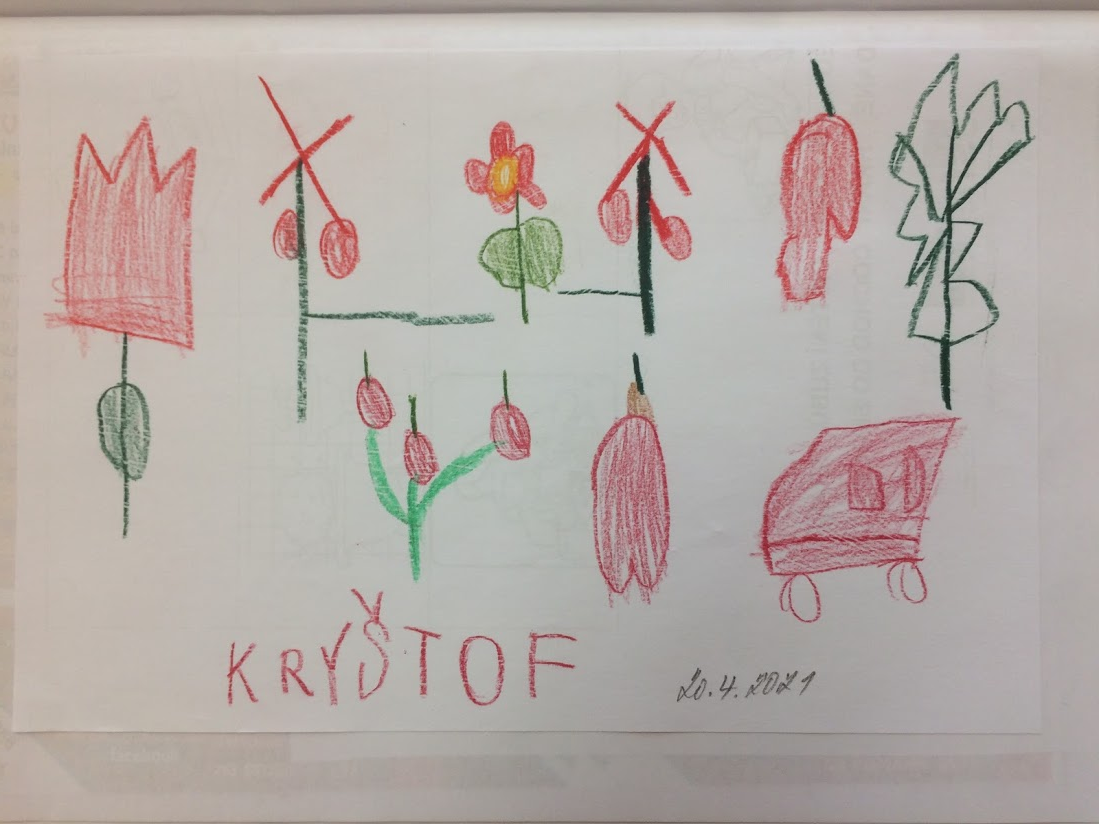 KRYŠTOF
20.4.2021